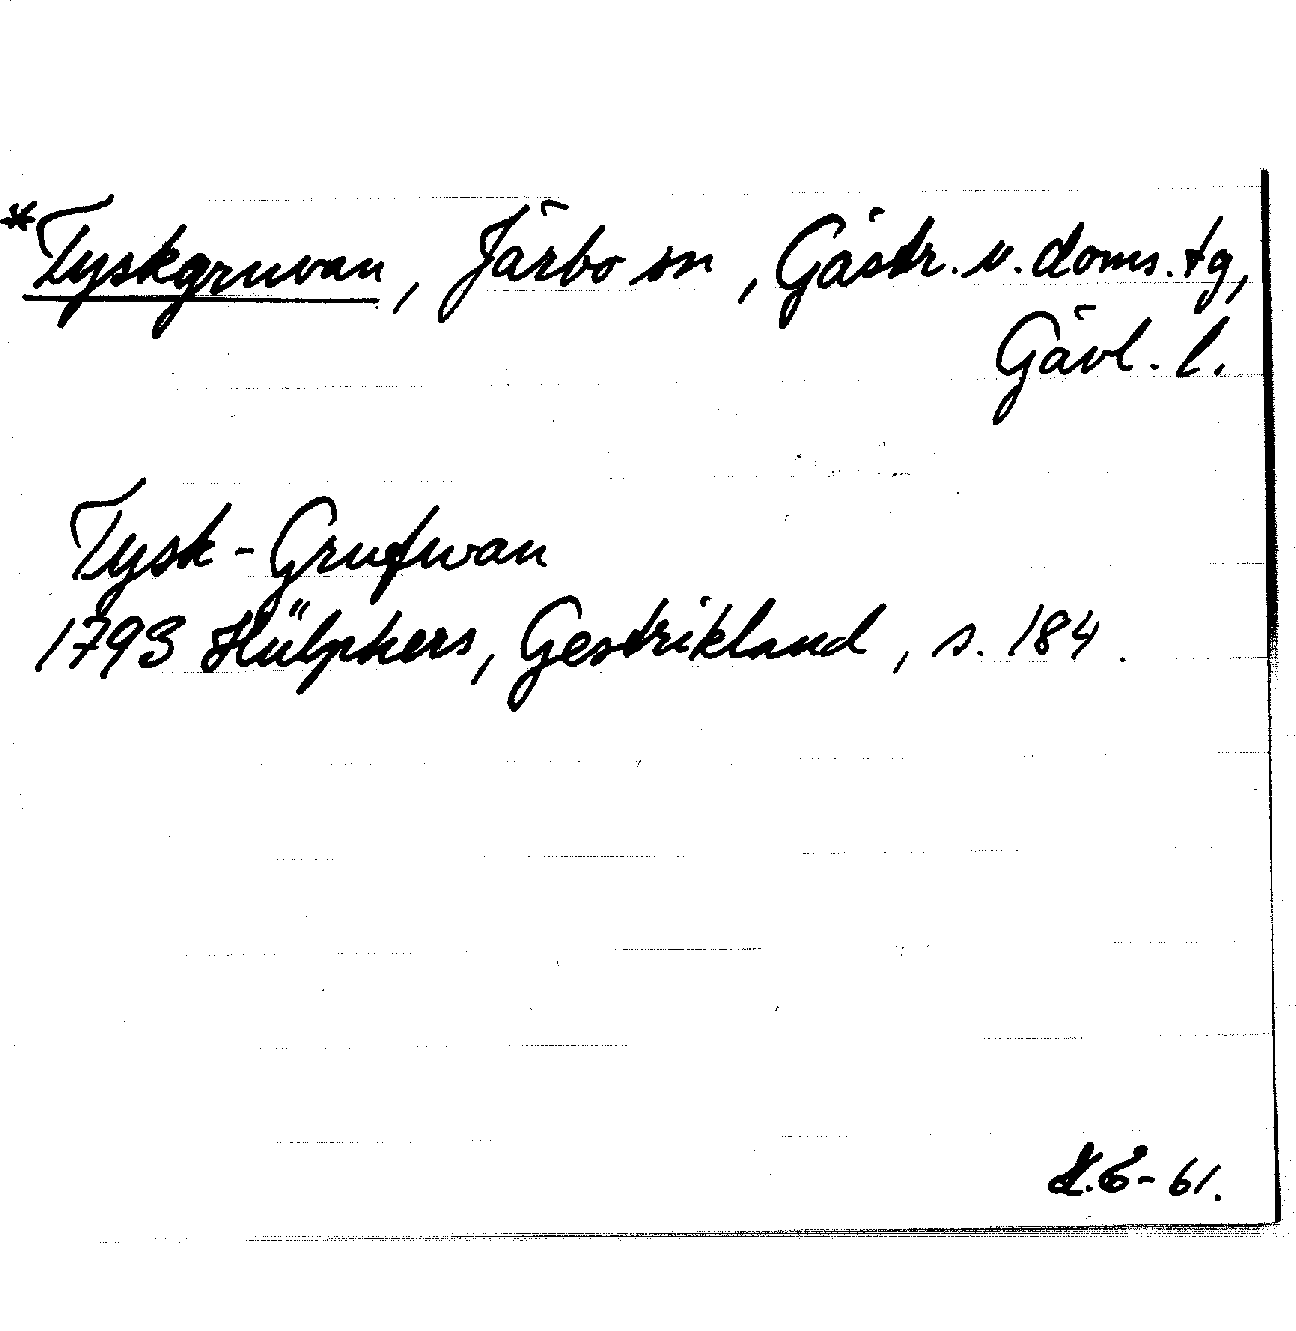 *Tyskgruvan, Järbo sn, Gästr. v. doms. tg,
Gävl. l.
Tysk-Grufwan
1793 Hülphers, Gestrikland, s. 184.
61.